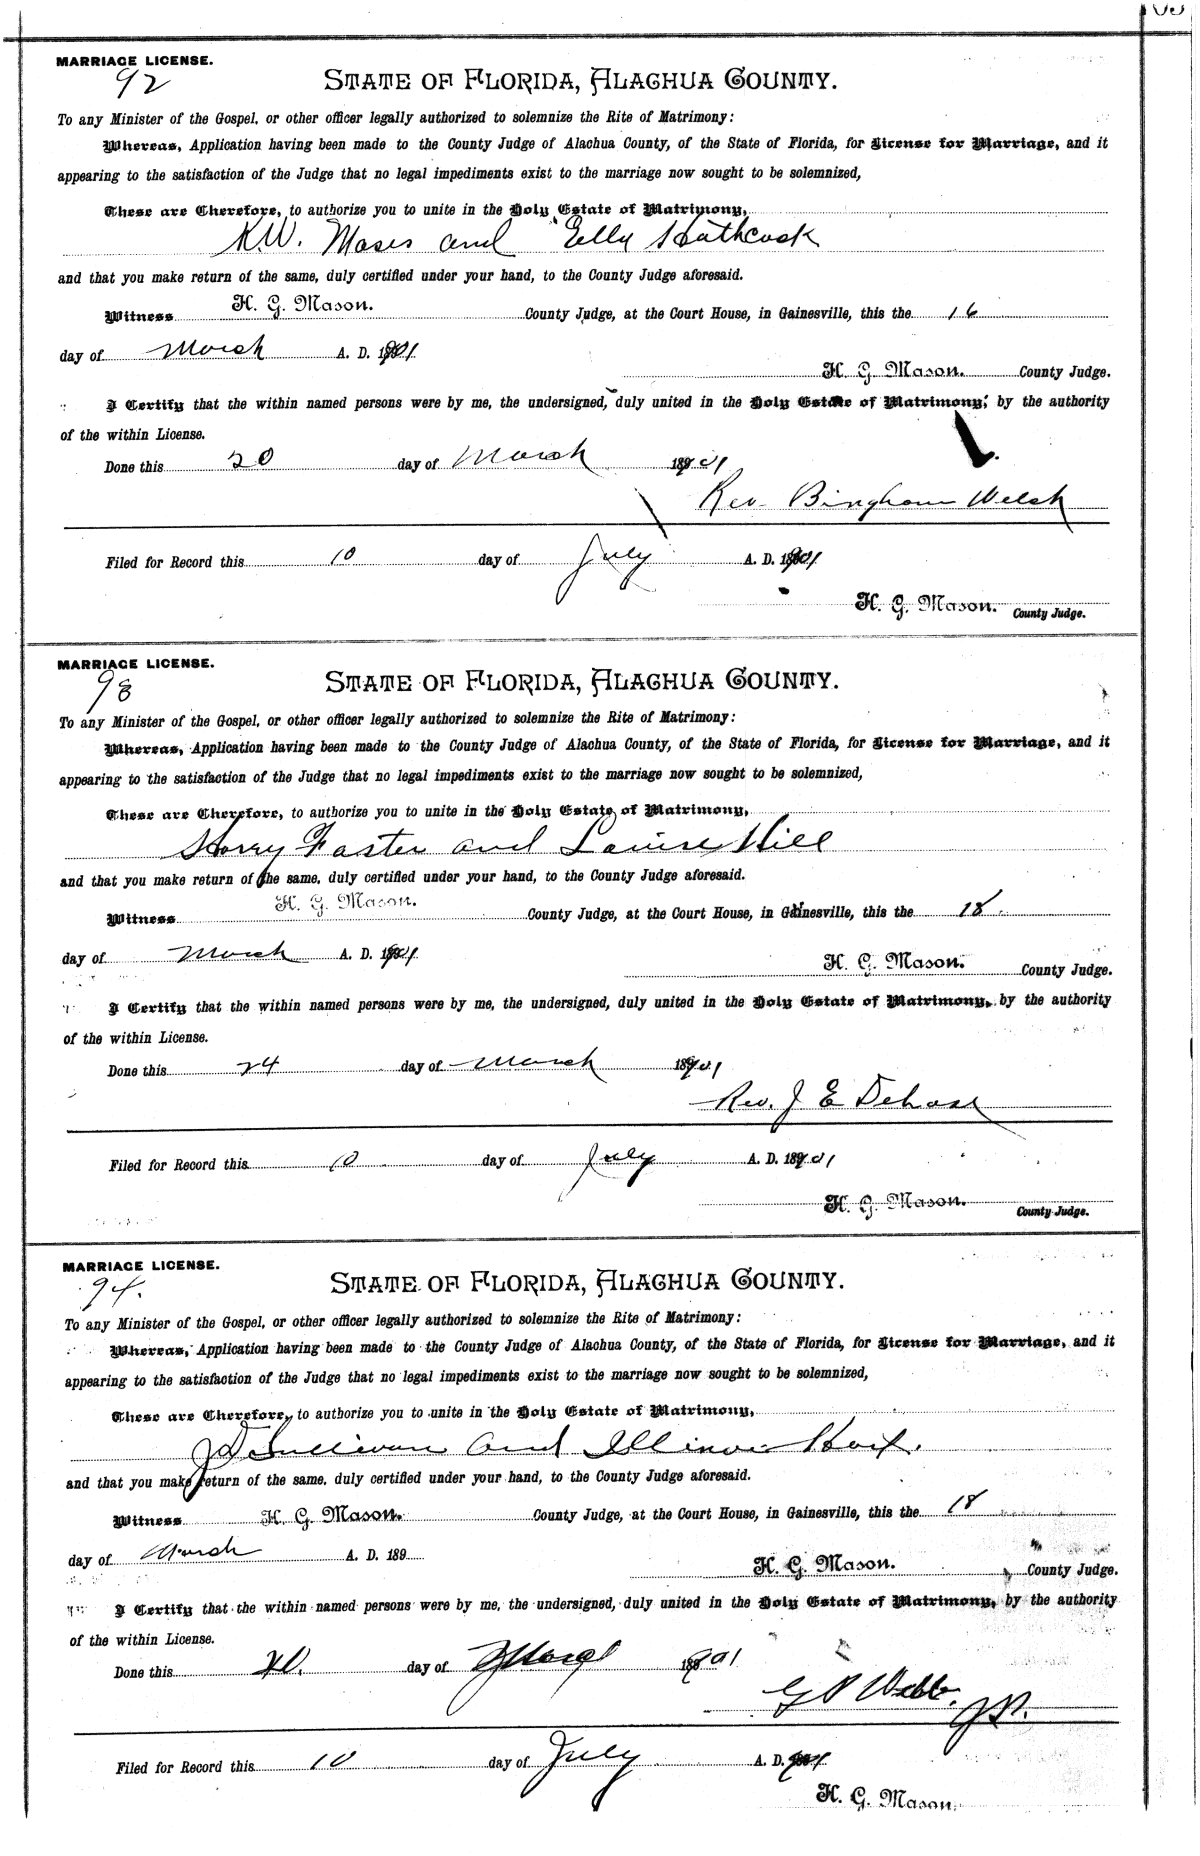 MARRIAGE LICENSE.
92
STATE OF FLORIDA, ALACHUA COUNTY.
To any Minister of the Gospel, or other officer legally authorized to solemnize the Rite of Matrimony:
Whereas, Application having been made to the County Judge of Alachua County, of the State of Florida, for License for Marriage, and it
appearing to the satisfaction of the Judge that no legal impediments exist to the marriage now sought to be solemnized,
These are Therefore, to authorize you to unite in the Holy Estate of Matrimony,
K.W. Moses and Hathcock
and that you make return of the same, duly certified under your hand, to the County Judge aforesaid.
Witness H. G. Mason. County Judge, at the Court House, in Gainesville, this the 16
day of March A. D. 1901
H. G. Mason. County Judge.
I Certify that the within named persons were by me, the undersigned, duly united in the Holy Estate of Matrimony, by the authority
of the within License.
Done this 20 day of March 1901
Rev. Bingham Welsh
Filed for Record this 10 day of July A. D. 1901
H. G. Mason. County Judge.
MARRIAGE LICENSE.
93
STATE OF FLORIDA, ALACHUA COUNTY.
To any Minister of the Gospel, or other officer legally authorized to solemnize the Rite of Matrimony:
Whereas, Application having been made to the County Judge of Alachua County, of the State of Florida, for License for Marriage, and it
appearing to the satisfaction of the Judge that no legal impediments exist to the marriage now sought to be solemnized,
These are Therefore, to authorize you to unite in the Holy Estate of Matrimony,
Harry Faster and Louise Hill
and that you make return of the same, duly certified under your hand, to the County Judge aforesaid.
Witness H. G. Mason. County Judge, at the Court House, in Gainesville, this the 18.
day of March A. D. 1901
H. G. Mason. County Judge.
I Certify that the within named persons were by me, the undersigned, duly united in the Holy Estate of Matrimony, by the authority
of the within License.
Done this 24 day of March 1901
Rev. J E
Filed for Record this 10 day of July A. D. 1901
H. G. Mason. County Judge.
MARRIAGE LICENSE.
94.
STATE OF FLORIDA, ALACHUA COUNTY.
To any Minister of the Gospel, or other officer legally authorized to solemnize the Rite of Matrimony:
Whereas, Application having been made to the County Judge of Alachua County, of the State of Florida, for License for Marriage, and it
appearing to the satisfaction of the Judge that no legal impediments exist to the marriage now sought to be solemnized,
These are Therefore, to authorize you to unite in the Holy Estate of Matrimony,
J D Sullivan and
and that you make return of the same, duly certified under your hand, to the County Judge aforesaid.
Witness H. G. Mason. County Judge, at the Court House, in Gainesville, this the 18
day of March A. D. 189
H. G. Mason. County Judge.
I Certify that the within named persons were by me, the undersigned, duly united in the Holy Estate of Matrimony, by the authority
of the within License.
Done this day of March 1901
G P Webb. J.P.
Filed for Record this 10 day of July A. D. 1901
H. G. Mason.